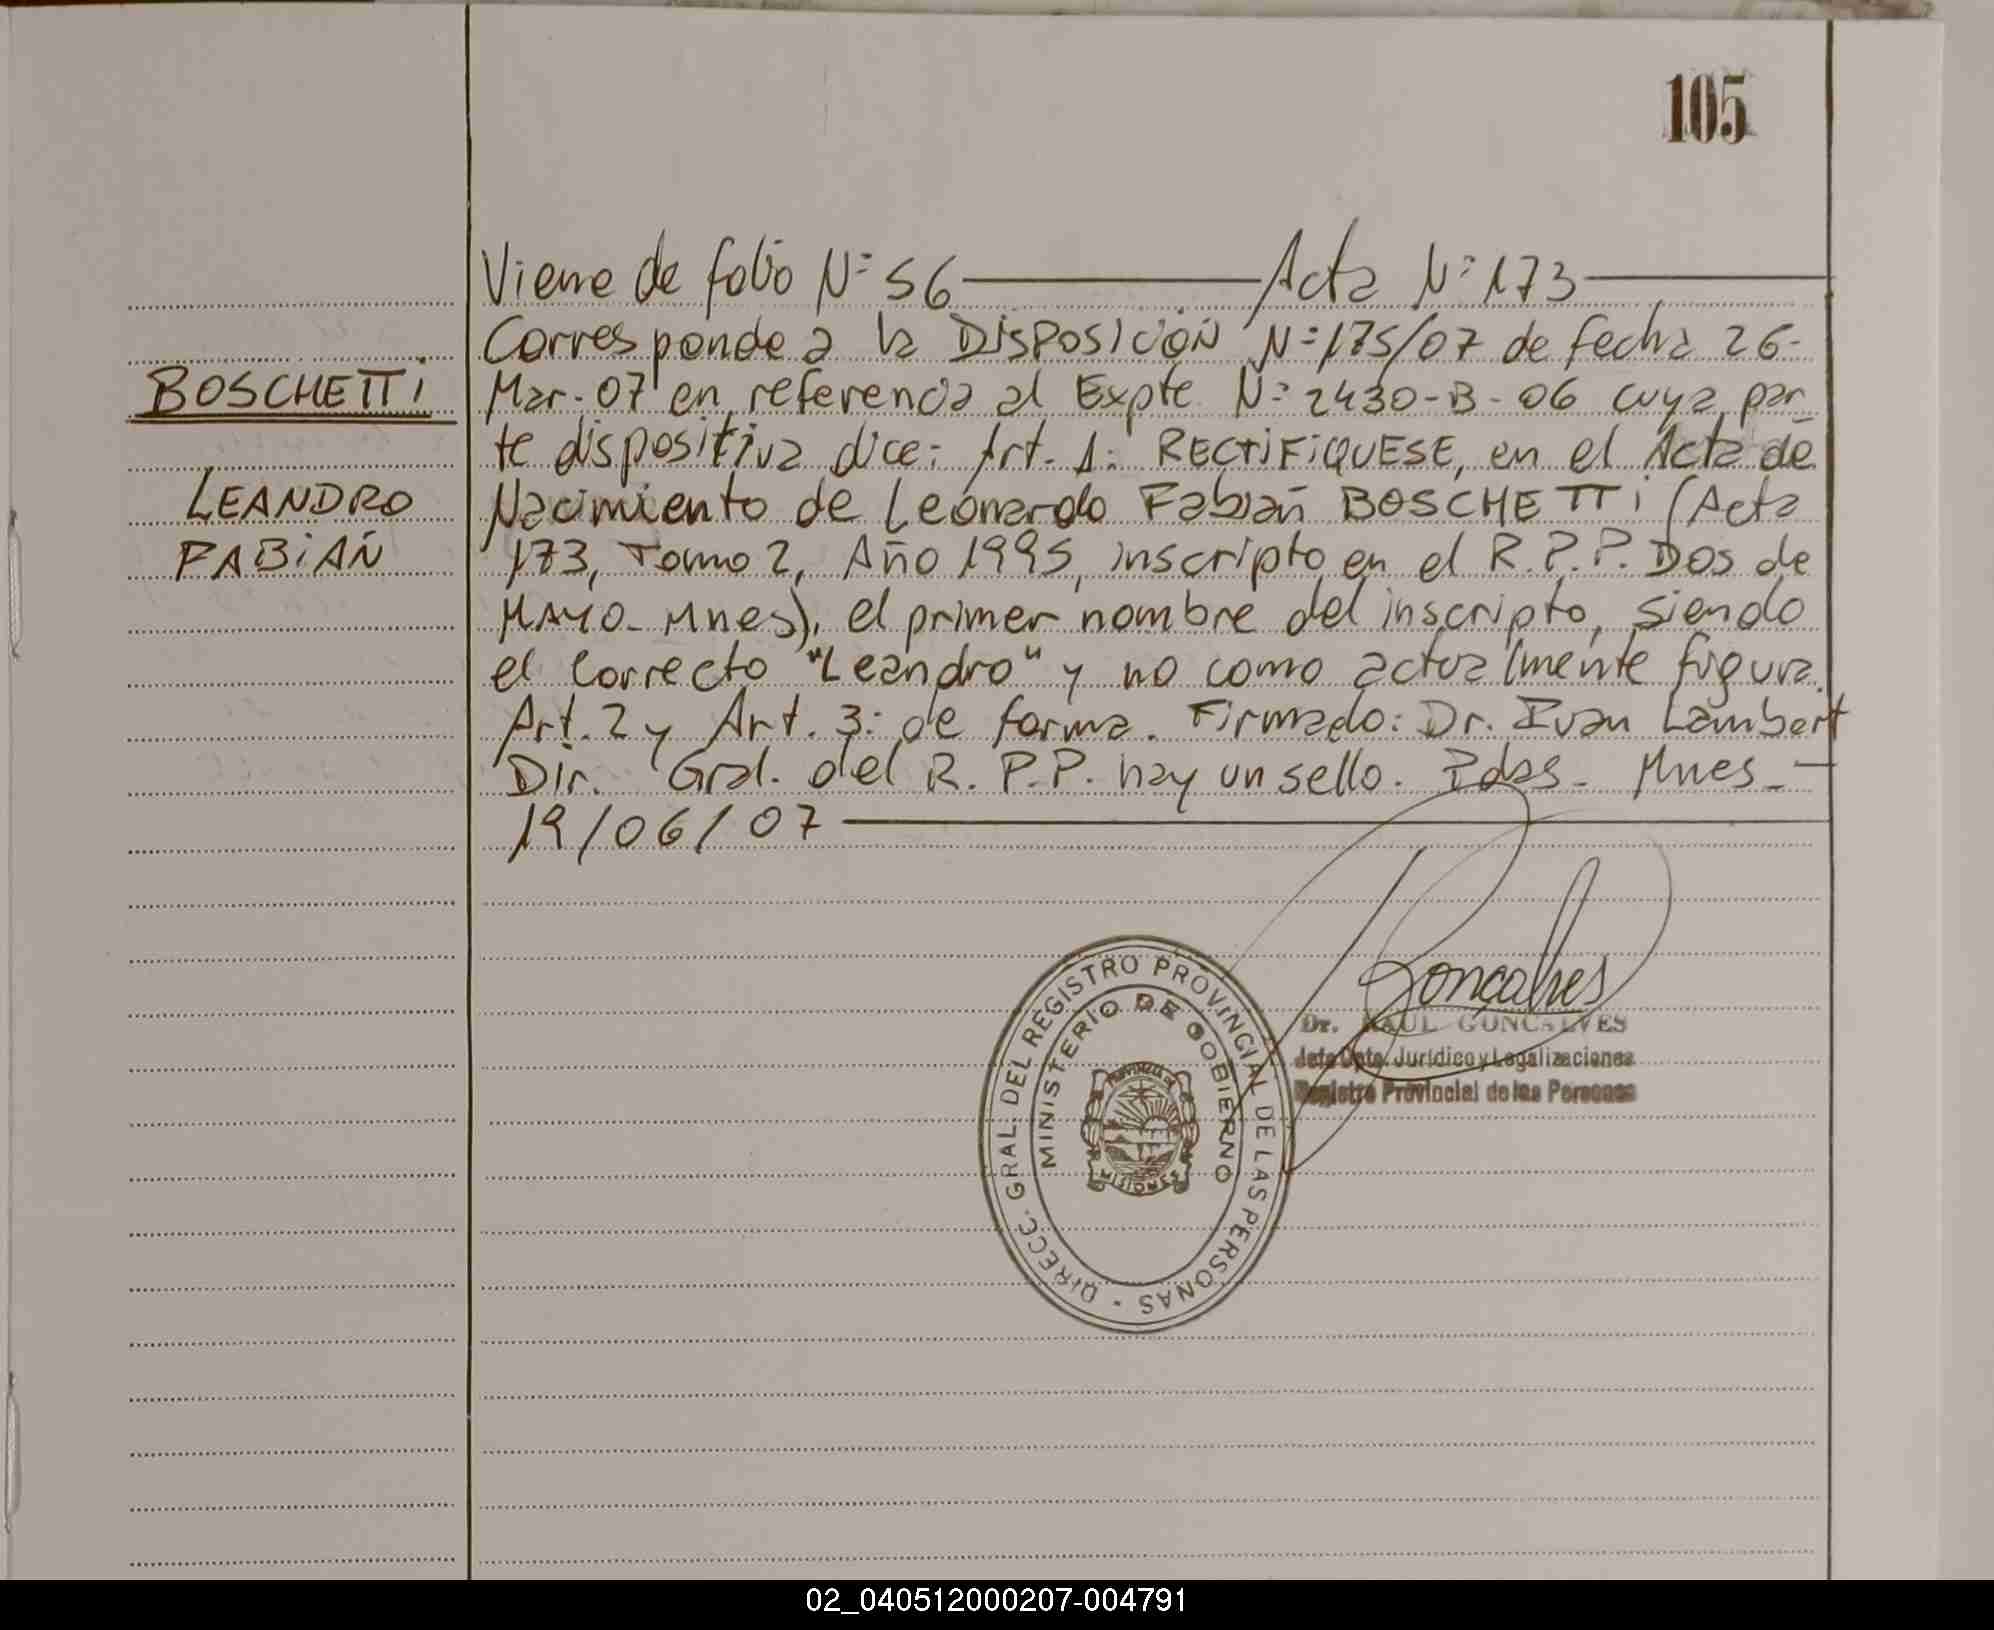 105
Viene de folio Nº 56 ———— Acta Nº 173 ————
Corresponde a la DISPOSICIÓN Nº 175/07 de fecha 26-
BOSCHETTI
Mar-07 en referencia al Expte Nº 2430-B-06 cuya par-
te dispositiva dice: Art. 1: RECTIFIQUESE, en el Acta de
LEANDRO
Nacimiento de Leonardo Fabián BOSCHETTI (Acta
FABIÁN
173, Tomo 2, Año 1995, inscripto en el R.P.P. Dos de
MAYO- Mnes), el primer nombre del inscripto, siendo
el correcto "Leandro" y no como actualmente figura.
Art. 2 y Art. 3: de forma. Firmado: Dr. Ivan Lambert
Dir. Gral. del R.P.P. hay un sello. Pdas- Mnes-—
19/06/07 ————
Gonçalves
Dr. RAUL GONCALVES
Jefe Dpto. Jurídico y Legalizaciones
Registro Provincial de las Personas
DIRECC. GRAL. DEL REGISTRO PROVINCIAL DE LAS PERSONAS -
MINISTERIO DE GOBIERNO
PROVINCIA DE
MISIONES
02_040512000207-004791